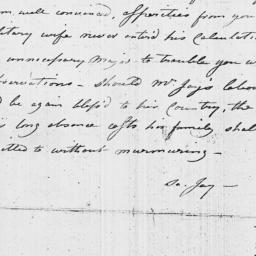 m well convinced, affectries from you
litary wife never enter'd his Calculati
unnecessary Maj: is to trouble you w
servations — should Mr Jays labou
d be again bless'd to his Country, the
is long absence costs his family shal
itted to without murmuring —
Sa. Jay —